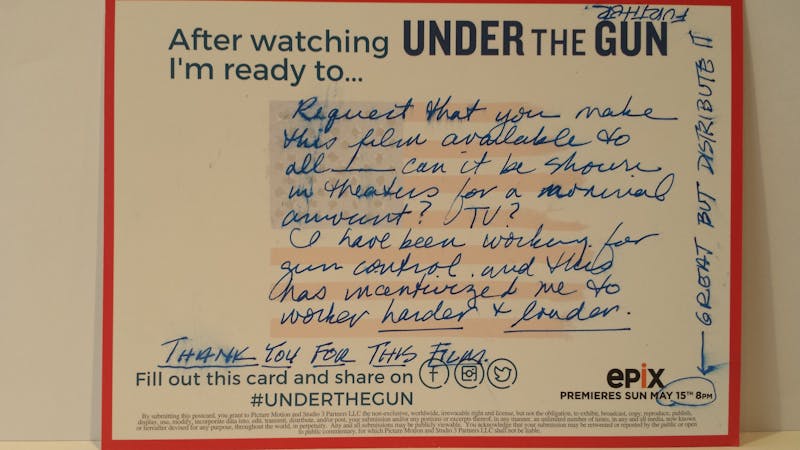 After watching UNDER THE GUN
I'm ready to...
Request that you make
this film available to
all — can it be shown
in theaters for a nominal
amount? TV?
I have been working for
gun control and this
has incentivized me to
worker harder & louder.
THANK YOU FOR THIS FILM.
GREAT BUT DISTRIBUTE IT
FURTHER.
Fill out this card and share on
#UNDERTHEGUN
epix
PREMIERES SUN MAY 15TH 8PM
By submitting this postcard, you grant to Picture Motion and Studio 3 Partners LLC the non-exclusive, worldwide, irrevocable right and license, but not the obligation, to exhibit, broadcast, copy, reproduce, publish,
display, use, modify, incorporate data into, edit, transmit, distribute, and/or post, your submission and/or any portions or excerpts thereof, in any manner, an unlimited number of times, in any and all media, now known,
or hereafter devised for any purpose, throughout the world, in perpetuity. Any and all submissions may be publicly viewable. You acknowledge that your submission may be retweeted or reposted by the public or open
to public commentary, for which Picture Motion and Studio 3 Partners LLC shall not be liable.